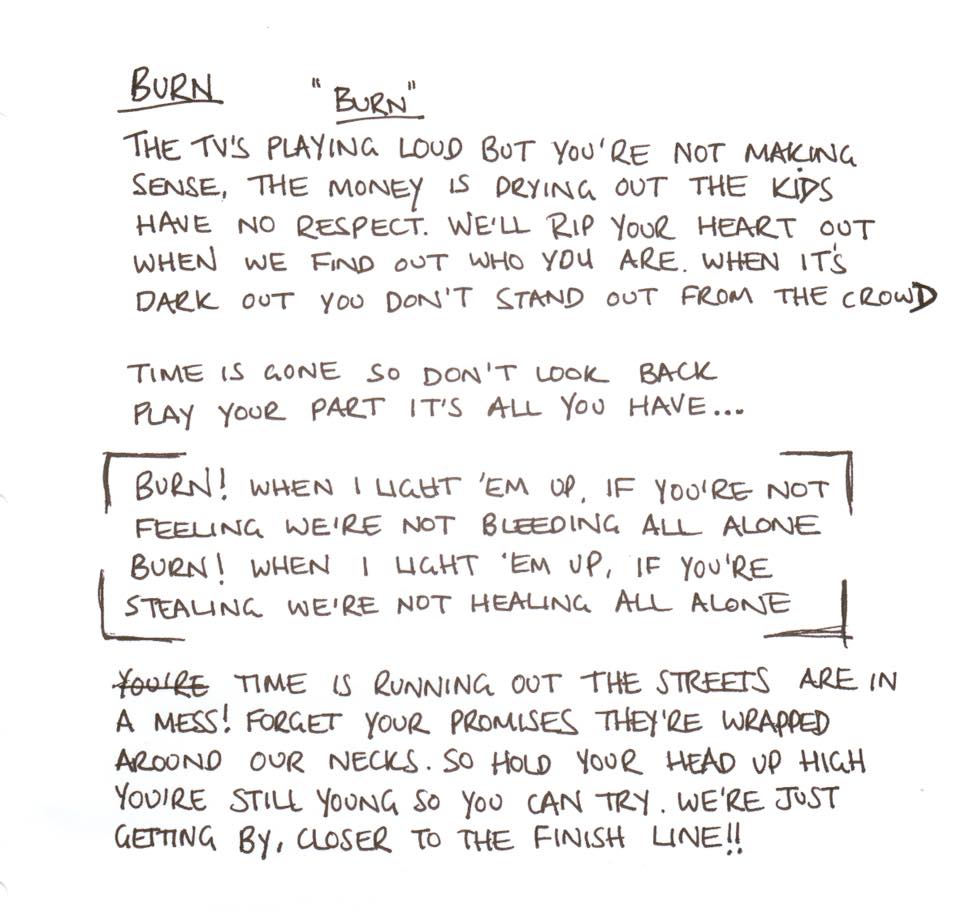 BURN "BURN"
THE TV'S PLAYING LOUD BUT YOU'RE NOT MAKING
SENSE, THE MONEY IS DRYING OUT THE KIDS
HAVE NO RESPECT. WE'LL RIP YOUR HEART OUT
WHEN WE FIND OUT WHO YOU ARE. WHEN IT'S
DARK OUT YOU DON'T STAND OUT FROM THE CROWD
TIME IS GONE SO DON'T LOOK BACK
PLAY YOUR PART IT'S ALL YOU HAVE...
BURN! WHEN I LIGHT 'EM UP, IF YOU'RE NOT
FEELING WE'RE NOT BLEEDING ALL ALONE
BURN! WHEN I LIGHT 'EM UP, IF YOU'RE
STEALING WE'RE NOT HEALING ALL ALONE
YOU'RE TIME IS RUNNING OUT THE STREETS ARE IN
A MESS! FORGET YOUR PROMISES THEY'RE WRAPPED
AROUND OUR NECKS. SO HOLD YOUR HEAD UP HIGH
YOU'RE STILL YOUNG SO YOU CAN TRY. WE'RE JUST
GETTING BY, CLOSER TO THE FINISH LINE!!